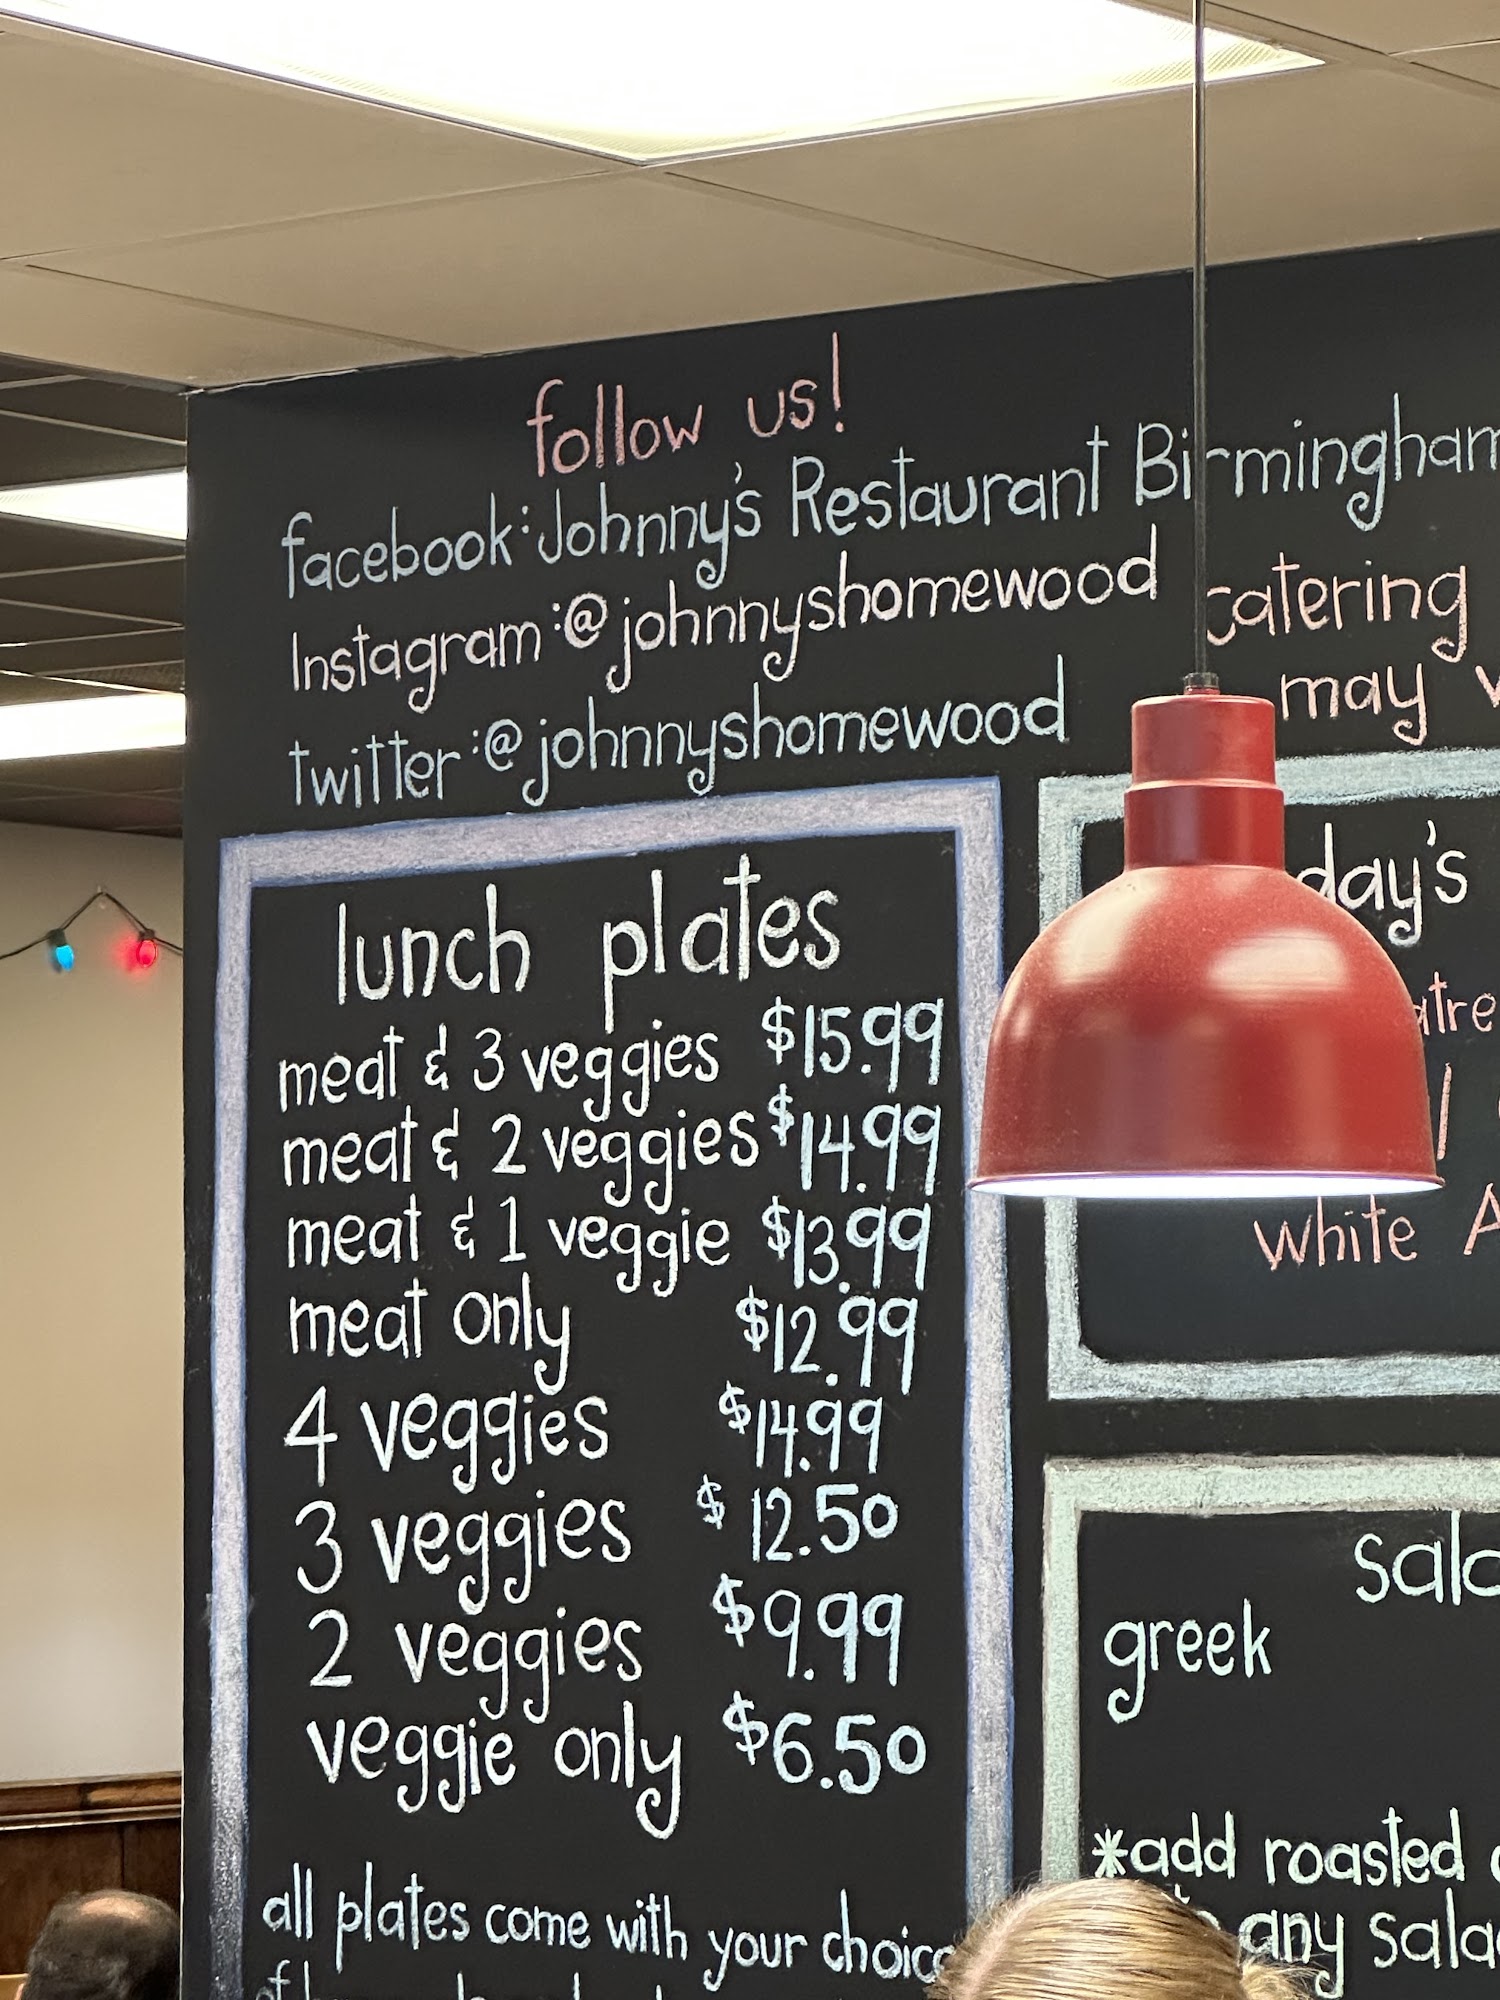 follow us!
facebook: Johnny's Restaurant Birmingham
Instagram: @johnnyshomewood
twitter: @johnnyshomewood
catering
may
lunch plates
meat & 3 veggies $15.99
meat & 2 veggies $14.99
meat & 1 veggie $13.99
meat only $12.99
4 veggies $14.99
3 veggies $12.50
2 veggies $9.99
veggie only $6.50
all plates come with your choice
day's
white A
greek
*add roasted
any